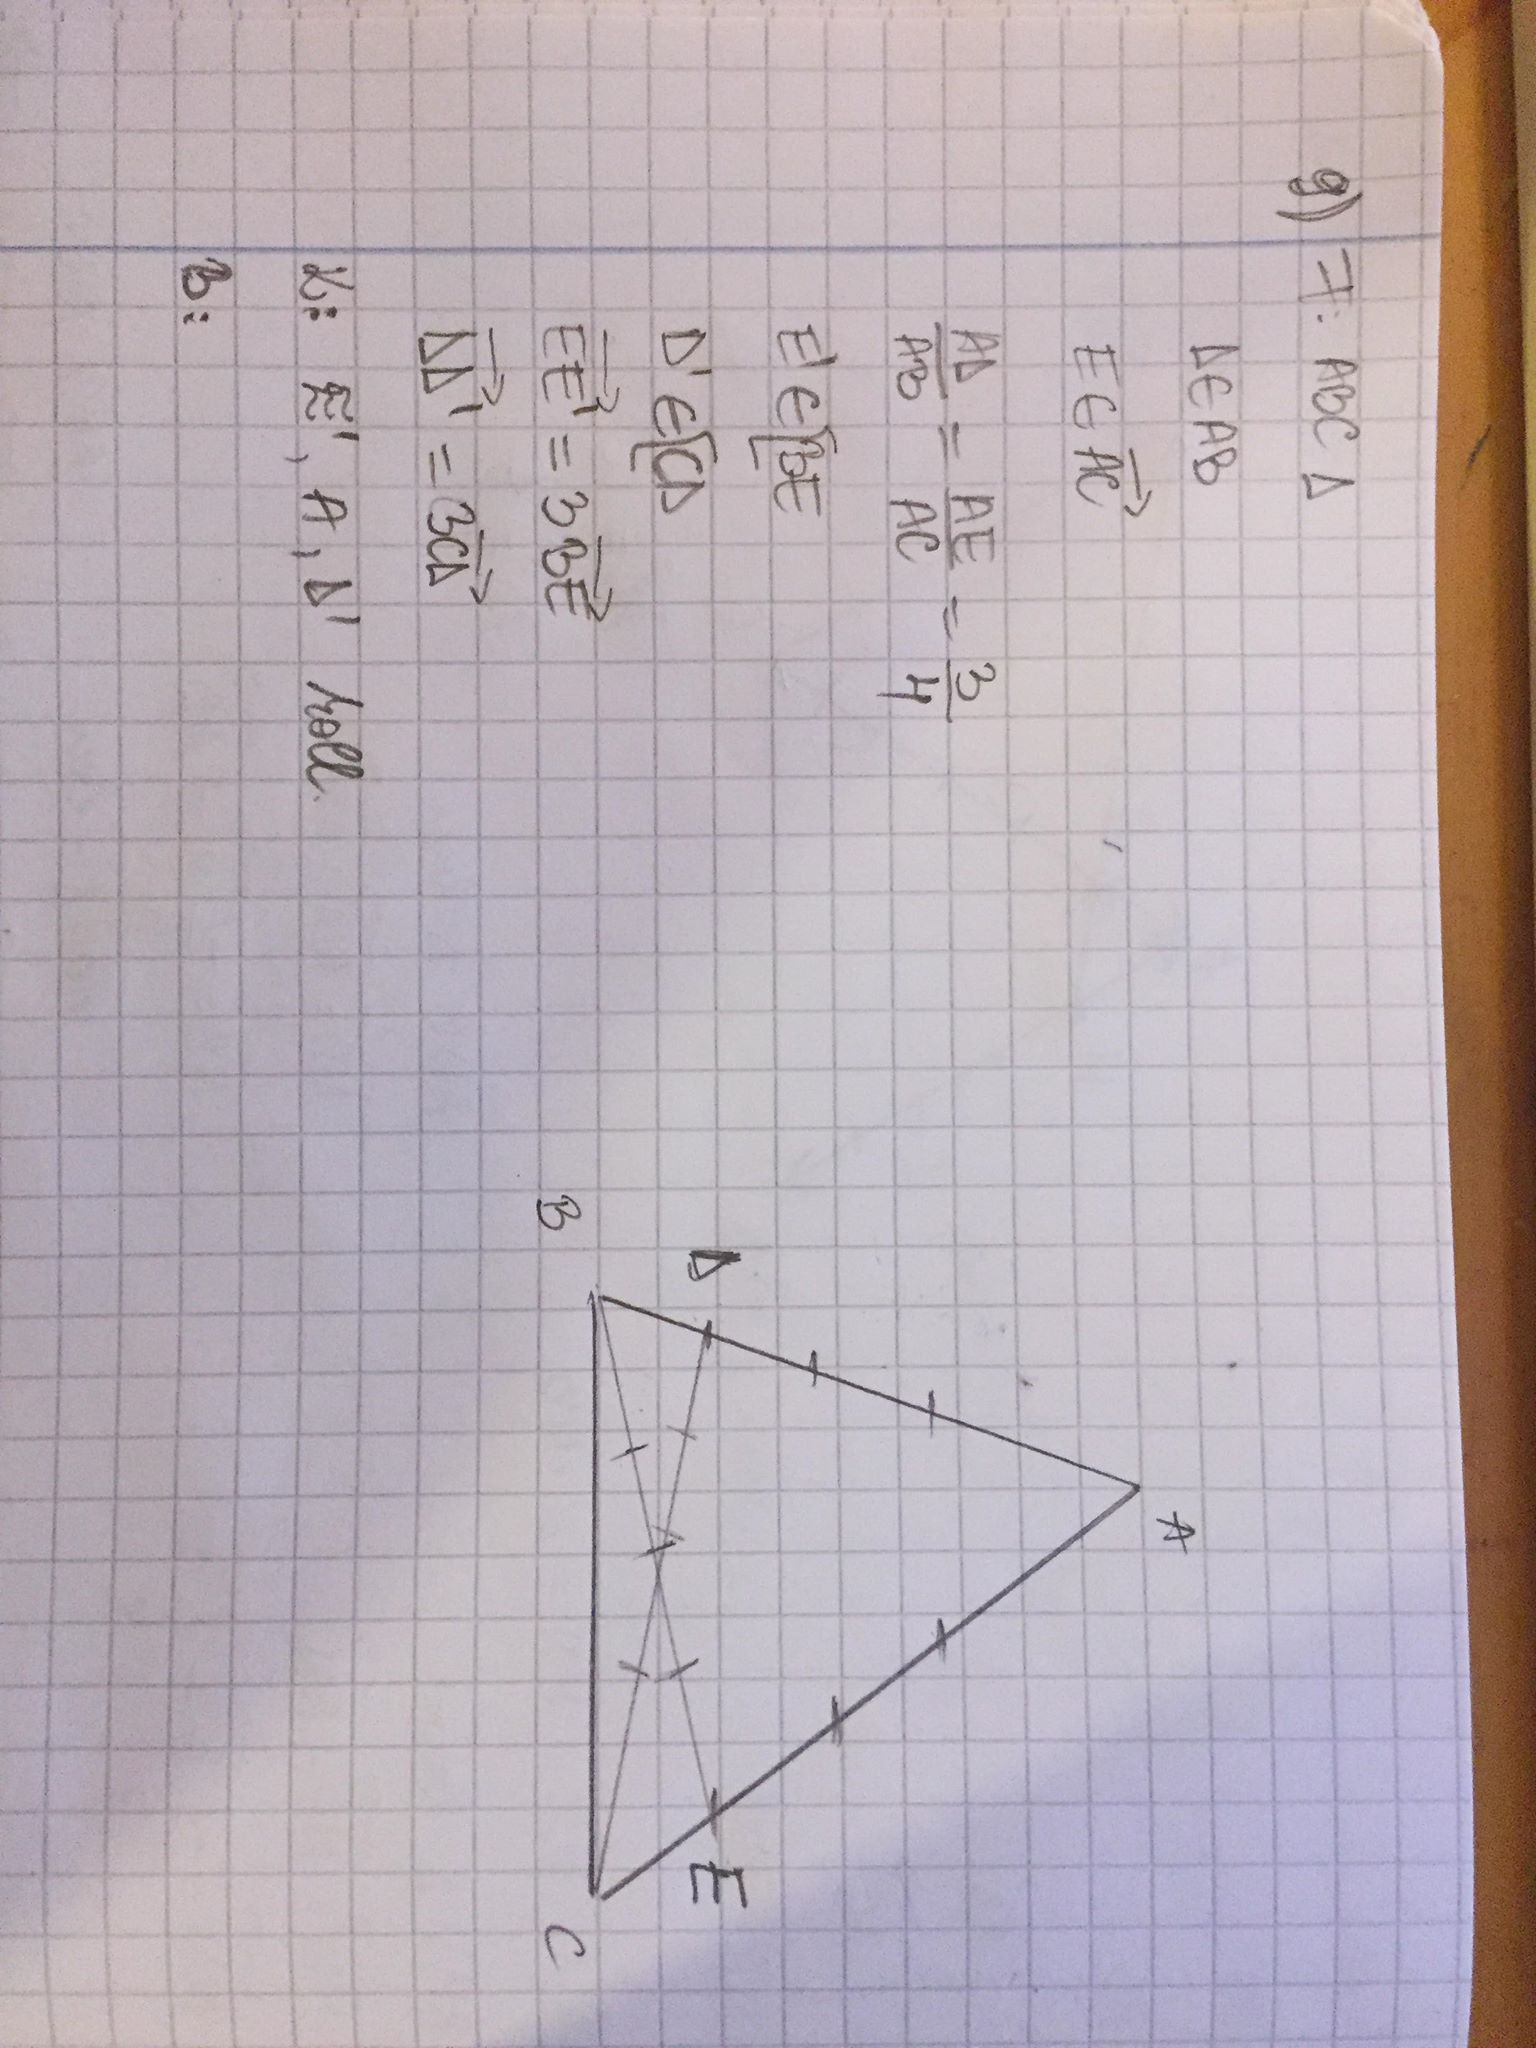 9) F: ABC Δ
D∈AB
E∈\overrightarrow{AC}
\frac{AD}{AB} = \frac{AE}{AC} = \frac{3}{4}
E'∈[BE
D'∈[CD
\overrightarrow{EE'} = 3\overrightarrow{BE}
\overrightarrow{DD'} = 3\overrightarrow{CD}
K: E', A, D' koll.
B:
A
D
E
B
C